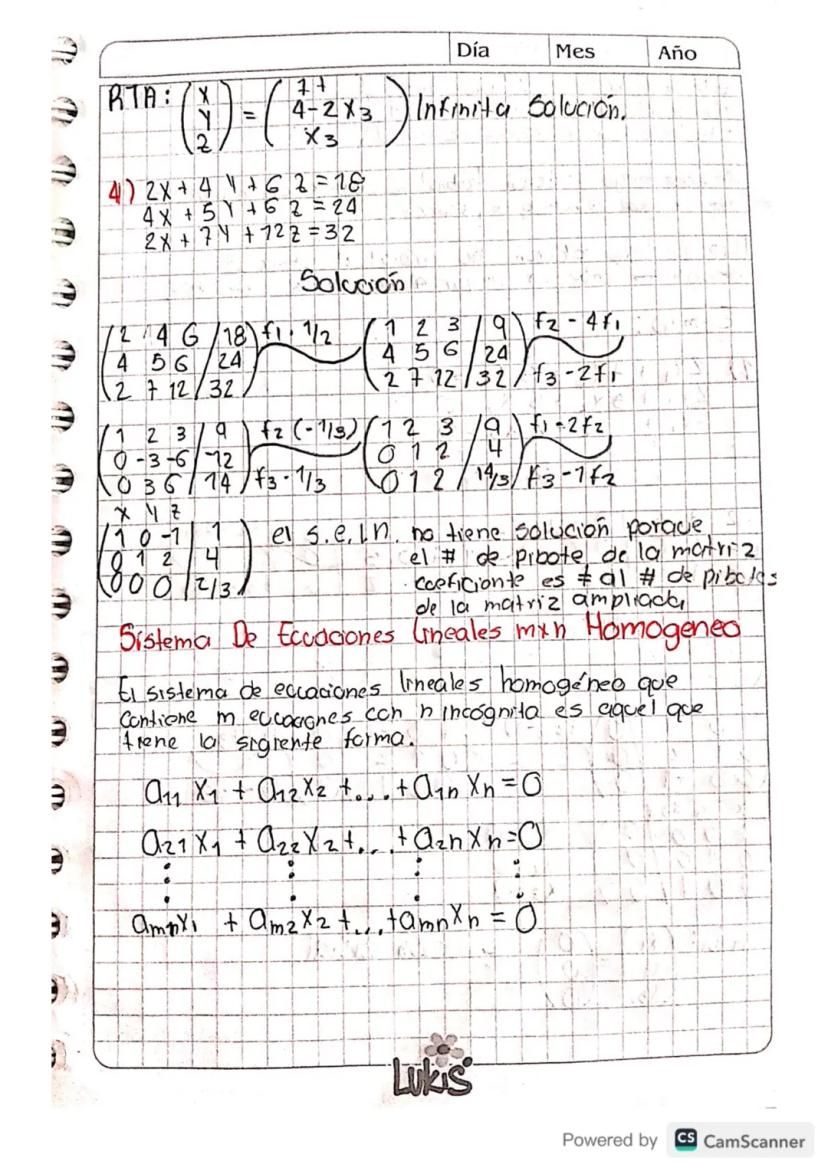 Día Mes Año
RTA: (X Y Z) = ( 4-2X3 X3 ) Infinita Solución.
4) 2X + 4 Y + 6 Z = 18
4X + 5Y + 6 Z = 24
2X + 7Y + 12Z = 32
Solución
(2 4 6 / 18) f1 · 1/2 (1 2 3 / 9) f2 - 4f1
4 5 6 / 24 4 5 6 / 24
2 7 12 / 32 2 7 12 / 32 f3 - 2f1
(1 2 3 / 9) f2 (-1/3) (1 2 3 / 9) f1 - 2f2
0 -3 -6 / -12 0 1 2 / 4
0 3 6 / 14 f3 · 1/3 0 1 2 / 14/3 f3 - 1f2
X Y Z
(1 0 -1 / 1) el s.e.l.n. no tiene solución porque
0 1 2 / 4 el # de pibote de la matriz
0 0 0 / 2/3 coeficiente es ≠ al # de pibotes
de la matriz ampliada
Sistema De Ecuaciones Lineales mxn Homogeneo
El sistema de ecuaciones lineales homogéneo que
contiene m ecuaciones con n incógnita es aquel que
tiene la sigiente forma.
a11 X1 + a12X2 + ... + a1n Xn = 0
a21 X1 + a22X2 + ... + a2n Xn = 0
⋮ ⋮ ⋮ ⋮
amnX1 + am2X2 + ... + amn Xn = 0
Lukis
Powered by CS CamScanner